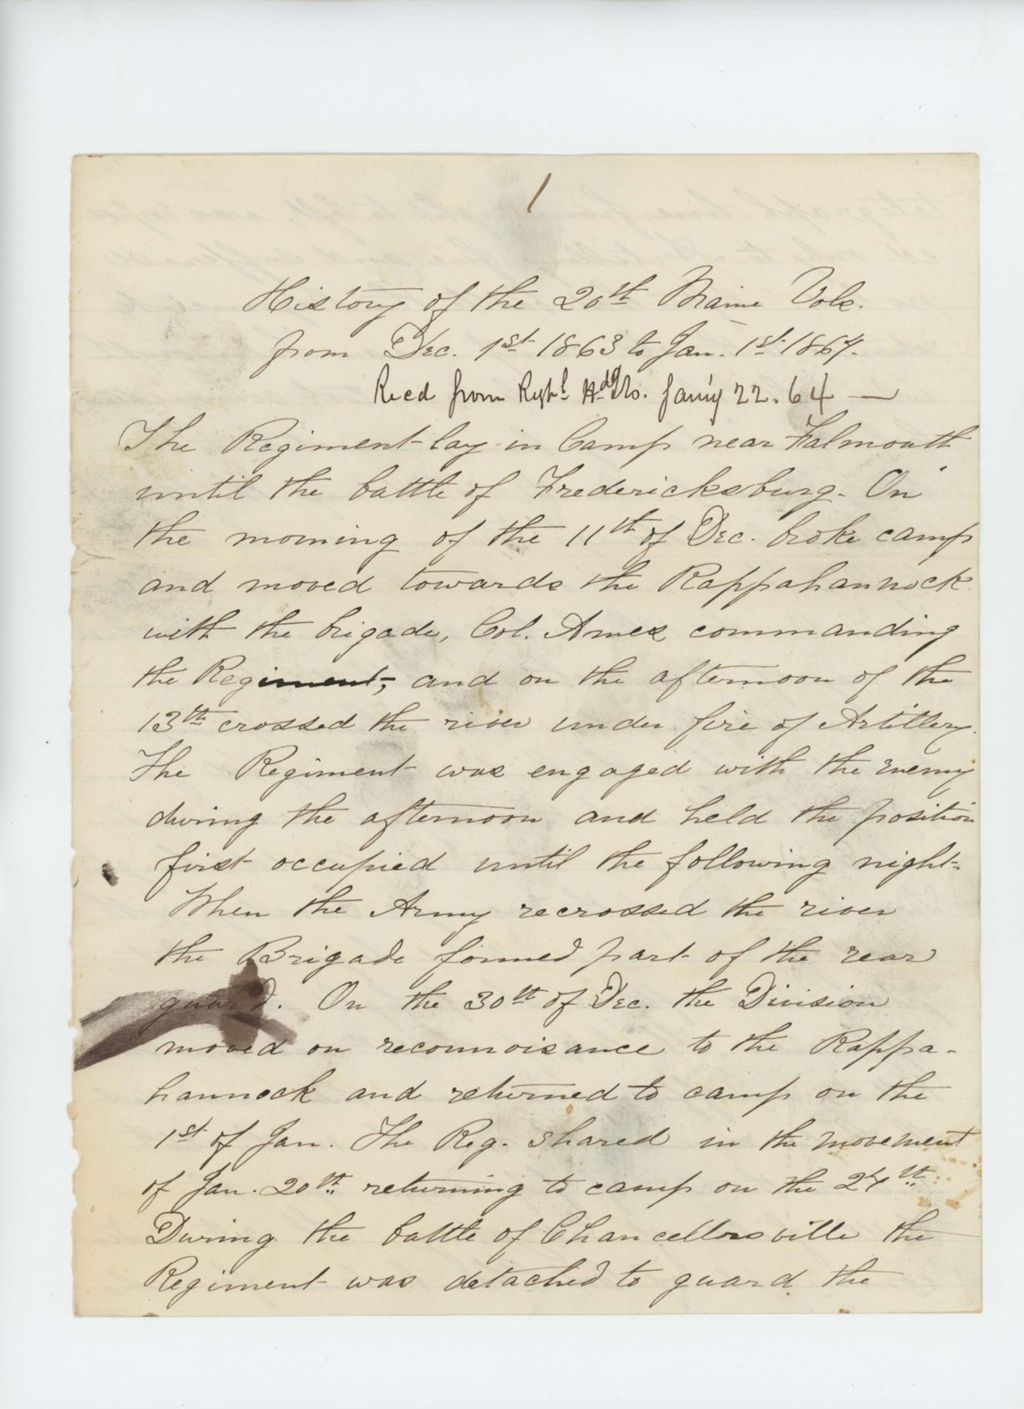 1
History of the 20th Maine Vols.
from Dec. 1st 1863 to Jan. 1st 1864.
Recd from Regtl Hdqrs. Jan'y 22. 64 —
The Regiment lay in Camp near Falmouth
until the battle of Fredericksburg. On
the morning of the 11th of Dec. broke camp
and moved towards the Rappahannock
with the brigade, Col. Ames commanding
the Regiment, and on the afternoon of the
13th crossed the river under fire of Artillery.
The Regiment was engaged with the enemy
during the afternoon and held the position
first occupied until the following night.
When the Army recrossed the river
the Brigade formed part of the rear
guard. On the 30th of Dec. the Division
moved on reconnoisance to the Rappa-
hannock and returned to camp on the
1st of Jan. The Reg. shared in the movement
of Jan. 20th returning to camp on the 24th.
During the battle of Chancellorsville the
Regiment was detached to guard the